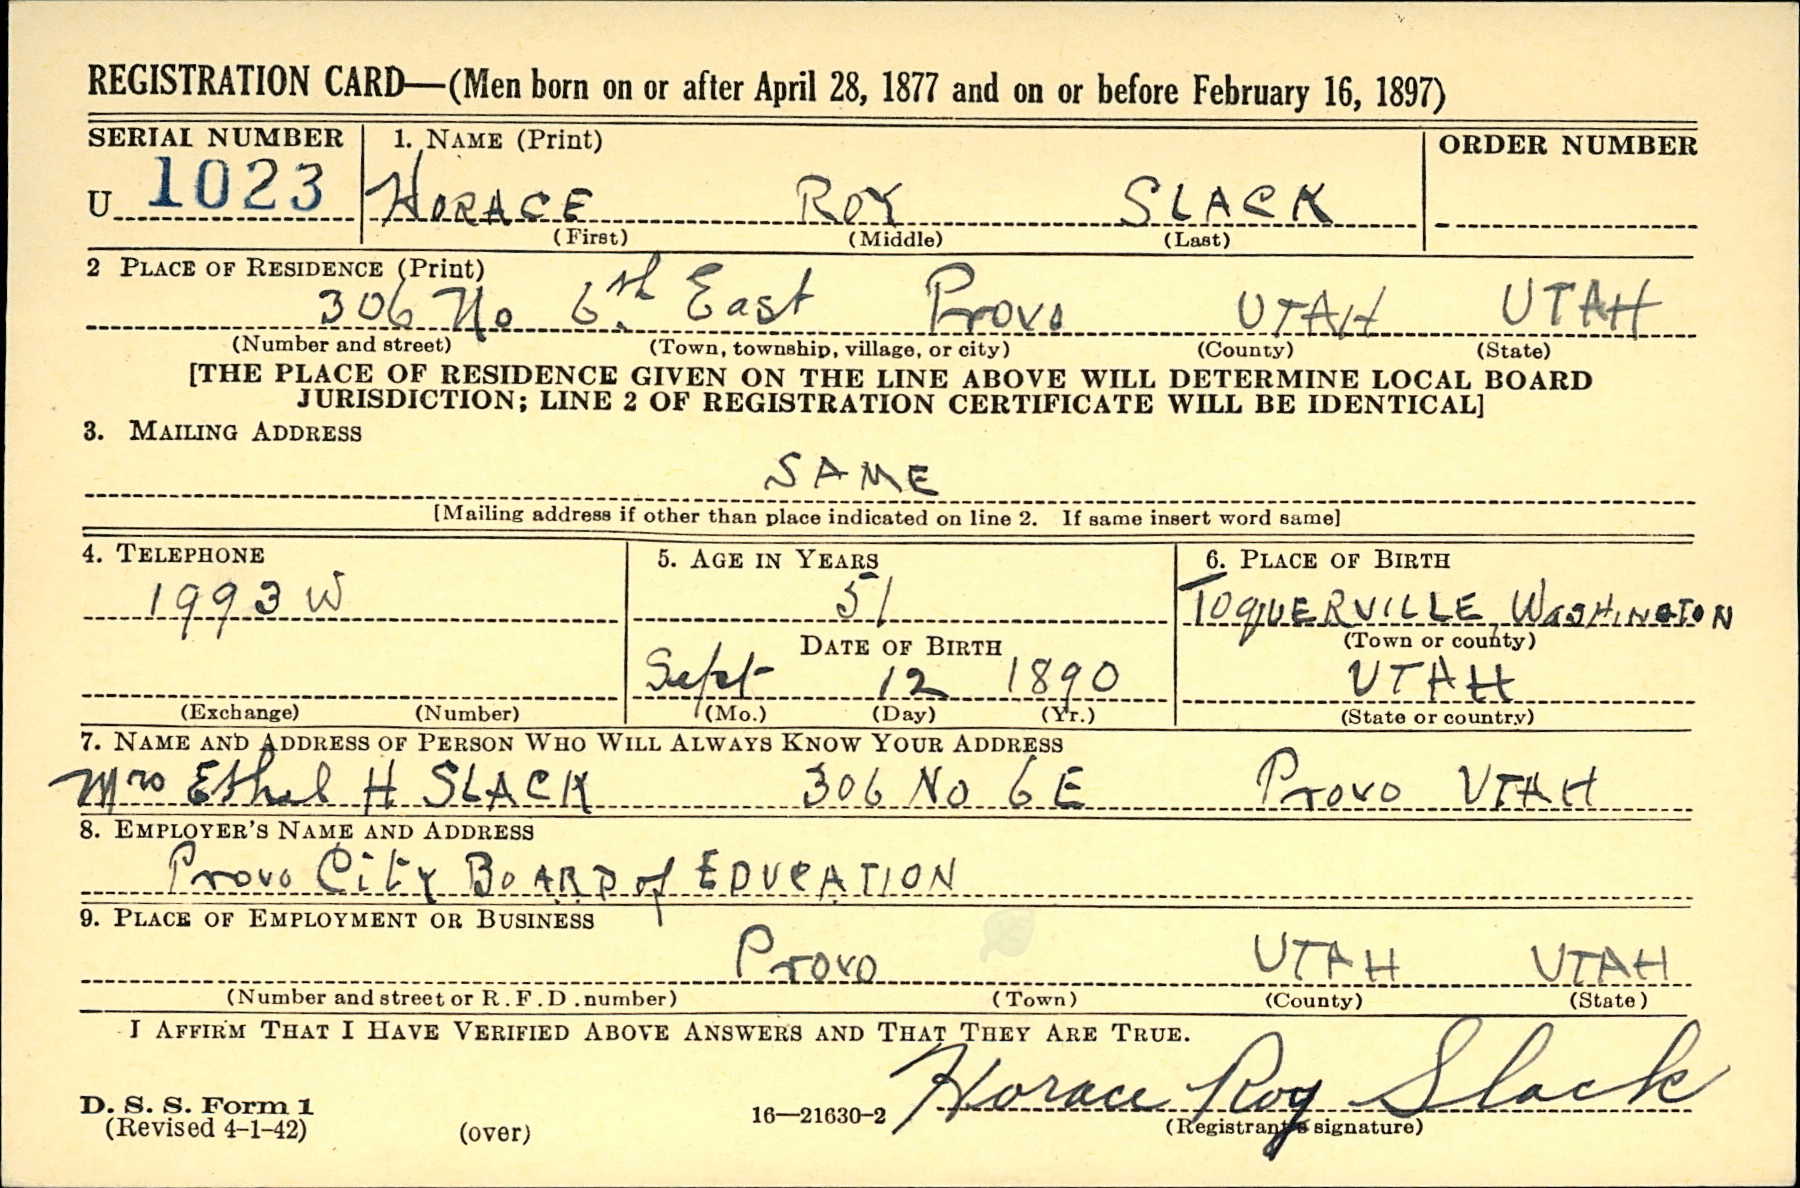 REGISTRATION CARD—(Men born on or after April 28, 1877 and on or before February 16, 1897)
SERIAL NUMBER 1. NAME (Print) ORDER NUMBER
U 1023 HORACE ROY SLACK
(First) (Middle) (Last)
2 PLACE OF RESIDENCE (Print)
306 No 6th East Provo UTAH UTAH
(Number and street) (Town, township, village, or city) (County) (State)
[THE PLACE OF RESIDENCE GIVEN ON THE LINE ABOVE WILL DETERMINE LOCAL BOARD
JURISDICTION; LINE 2 OF REGISTRATION CERTIFICATE WILL BE IDENTICAL]
3. MAILING ADDRESS
SAME
[Mailing address if other than place indicated on line 2. If same insert word same]
4. TELEPHONE 5. AGE IN YEARS 6. PLACE OF BIRTH
1993 W 51 TOQUERVILLE, WASHINGTON
DATE OF BIRTH (Town or county)
Sept 12 1890 UTAH
(Exchange) (Number) (Mo.) (Day) (Yr.) (State or country)
7. NAME AND ADDRESS OF PERSON WHO WILL ALWAYS KNOW YOUR ADDRESS
Mrs Ethel H SLACK 306 No 6 E Provo UTAH
8. EMPLOYER'S NAME AND ADDRESS
Provo City BOARD of EDUCATION
9. PLACE OF EMPLOYMENT OR BUSINESS
Provo UTAH UTAH
(Number and street or R.F.D. number) (Town) (County) (State)
I AFFIRM THAT I HAVE VERIFIED ABOVE ANSWERS AND THAT THEY ARE TRUE.
Horace Roy Slack
D. S. S. Form 1
(Revised 4-1-42) (over) 16—21630-2 (Registrant's signature)